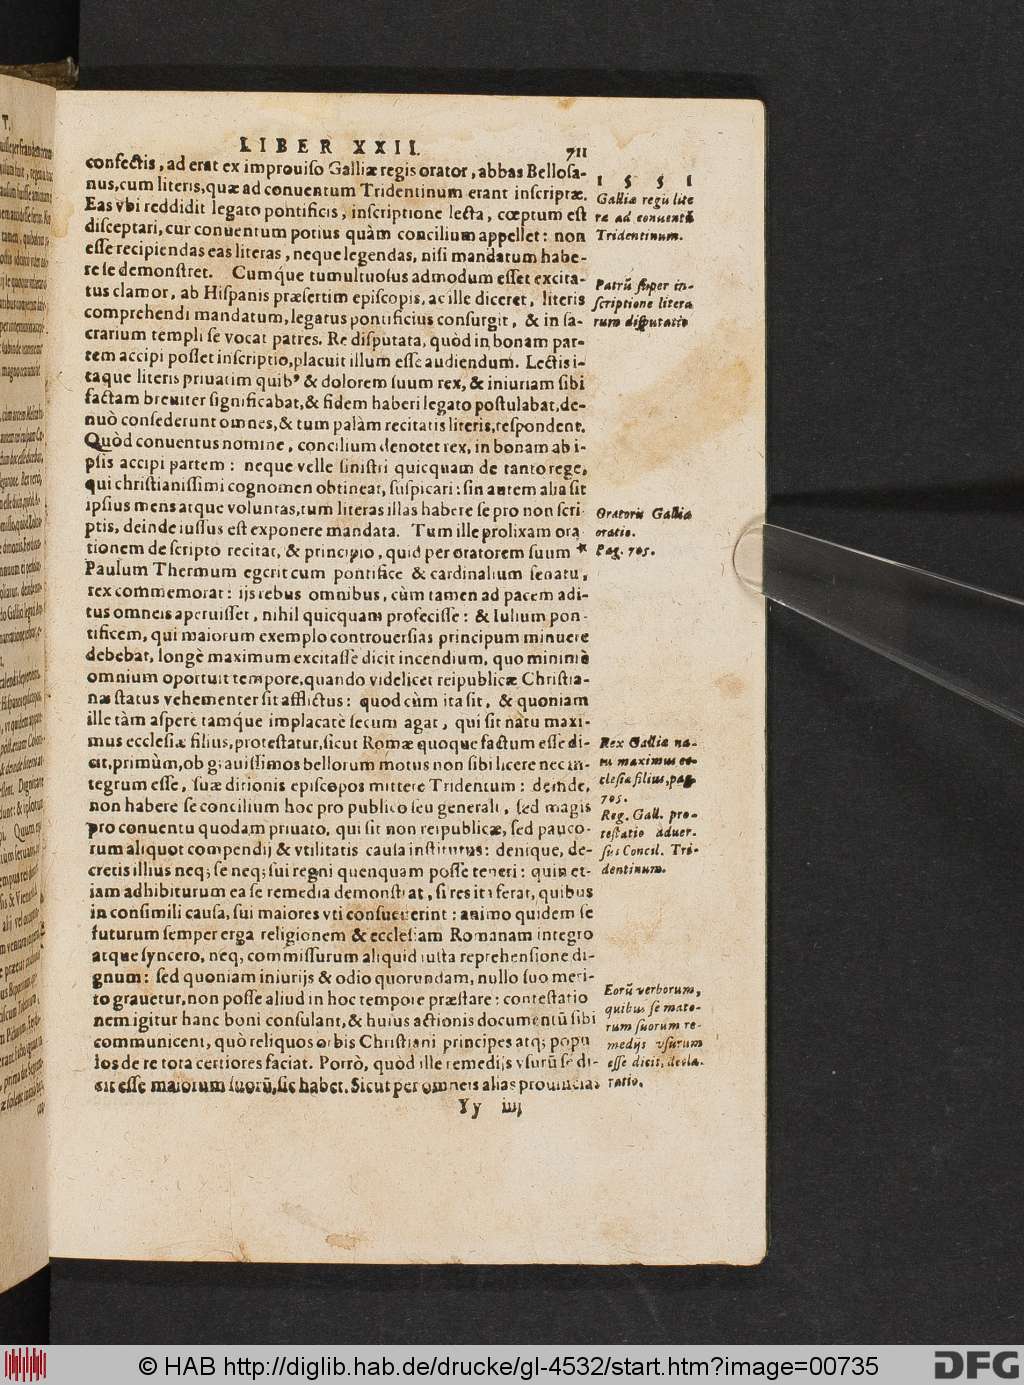 LIBER XXII. 711
confectis, ad erat ex improuiso Galliæ regis orator, abbas Bellosa-
nus, cum literis, quæ ad conuentum Tridentinum erant inscriptæ.
Eas vbi reddidit legato pontificis, inscriptione lecta, cœptum est
disceptari, cur conuentum potius quàm concilium appellet: non
esse recipiendas eas literas, neque legendas, nisi mandatum habe-
re se demonstret. Cumq́ue tumultuosus admodum esset excita-
tus clamor, ab Hispanis præsertim episcopis, ac ille diceret, literis
comprehendi mandatum, legatus pontificius consurgit, & in sa-
crarium templi se vocat patres. Re disputata, quòd in bonam par-
tem accipi posset inscriptio, placuit illum esse audiendum. Lectis i-
taque literis priuatim quib' & dolorem suum rex, & iniuriam sibi
factam breuiter significabat, & fidem haberi legato postulabat, de-
nuò consederunt omnes, & tum palàm recitatis literis, respondent.
Quòd conuentus nomine, concilium denotet rex, in bonam ab i-
psis accipi partem: neque velle sinistri quicquam de tanto rege,
qui christianissimi cognomen obtineat, suspicari: sin autem alia sit
ipsius mens atque voluntas, tum literas illas habere se pro non scri-
ptis, deinde iussus est exponere mandata. Tum ille prolixam ora
tionem de scripto recitat, & principio, quid per oratorem suum *
Paulum Thermum egerit cum pontifice & cardinalium senatu,
rex commemorat: ijs rebus omnibus, cùm tamen ad pacem adi-
tus omneis aperuisset, nihil quicquam profecisse: & Iulium pon-
tificem, qui maiorum exemplo controuersias principum minuere
debebat, longè maximum excitasse dicit incendium, quo minimè
omnium oportuit tempore, quando videlicet reipublicæ Christia-
næ status vehementer sit afflictus: quod cùm ita sit, & quoniam
ille tàm asperè tamq́ue implacatè secum agat, qui sit natu maxi-
mus ecclesiæ filius, protestatur, sicut Romæ quoque factum esse di-
cit, primùm, ob grauissimos bellorum motus non sibi licere nec in-
tegrum esse, suæ ditionis episcopos mittere Tridentum: deinde,
non habere se concilium hoc pro publico seu generali, sed magis
pro conuentu quodam priuato, qui sit non reipublicæ, sed pauco-
rum aliquot compendij & vtilitatis causa institutus: denique, de-
cretis illius neq; se neq; sui regni quenquam posse teneri: quin et-
iam adhibiturum ea se remedia demonstrat, si res ita ferat, quibus
in consimili causa, sui maiores vti consueuerint: animo quidem se
futurum semper erga religionem & ecclesiam Romanam integro
atque syncero, neq; commissurum aliquid iusta reprehensione di-
gnum: sed quoniam iniurijs & odio quorundam, nullo suo meri-
to grauetur, non posse aliud in hoc tempore præstare: contestatio
nem igitur hanc boni consulant, & huius actionis documentũ sibi
communicent, quò reliquos orbis Christiani principes atq; popu
los de re tota certiores faciat. Porrò, quòd ille remedijs vsurũ se di-
cit esse maiorum suorũ, sic habet. Sicut per omneis alias prouincias
Yy iiij
1 5 5 1
Galliæ regis lite
ræ ad conuentũ
Tridentinum.
Patrũ super in-
scriptione litera
rum disputatio
Oratoris Galliæ
oratio.
Pag. 705.
Rex Galliæ na-
tu maximus ec-
clesiæ filius, pag.
705.
Reg. Gall. pro-
testatio aduer-
sus Concil. Tri-
dentinum.
Eorũ verborum,
quibus se maio-
rum suorum re-
medijs vsurum
esse dicit, decla-
ratio.
© HAB http://diglib.hab.de/drucke/gl-4532/start.htm?image=00735
DFG